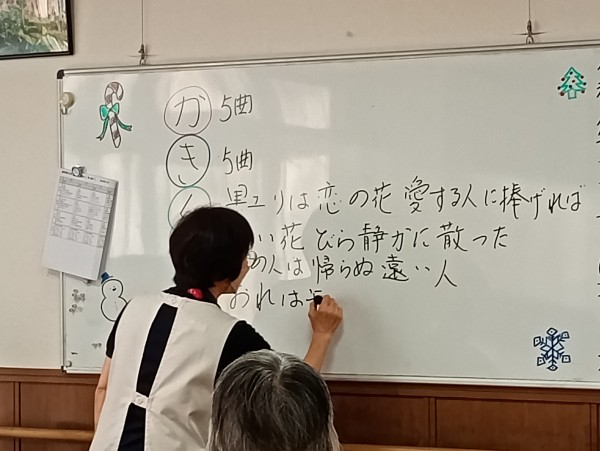 か 5曲
き 5曲
く 黒ユリは恋の花 愛する人に捧げれば
い花びら静かに散った
人は帰らぬ遠い人
おれは